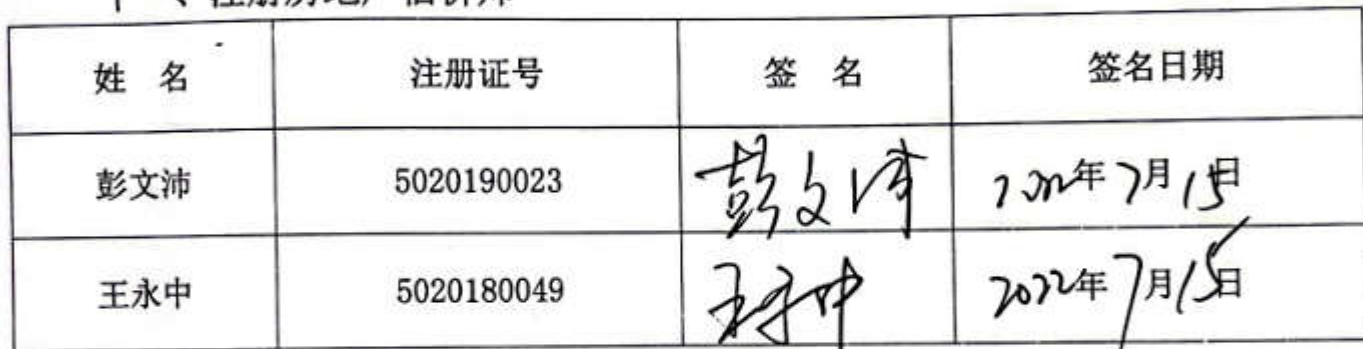 、注册房地产估价师
姓 名 注册证号 签 名 签名日期
彭文沛 5020190023 彭文沛 2022年7月15日
王永中 5020180049 王永中 2022年7月15日